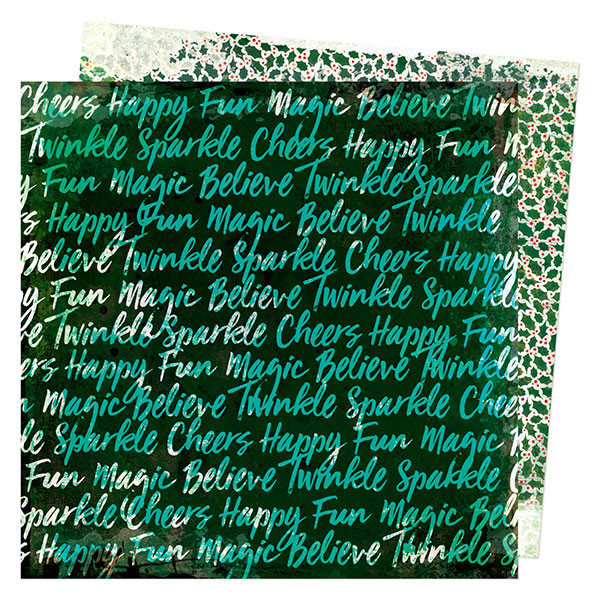 Cheers Happy Fun Magic Believe Twin
Twinkle Sparkle Cheers Happy Fun
y Fun Magic Believe Twinkle Sparkle
s Happy Fun Magic Believe Twinkle
Believe Twinkle Sparkle Cheers Happy
y Fun Magic Believe Twinkle Sparkle
e Twinkle Sparkle Cheers Happy Fun
ers Happy Fun Magic Believe Twinkle
Magic Believe Twinkle Sparkle Chee
le Sparkle Cheers Happy Fun Magic
Fun Magic Believe Twinkle Sparkle C
Sparkle Cheers Happy Fun Magic Bel
le Happy Fun Magic Believe Twinkle S